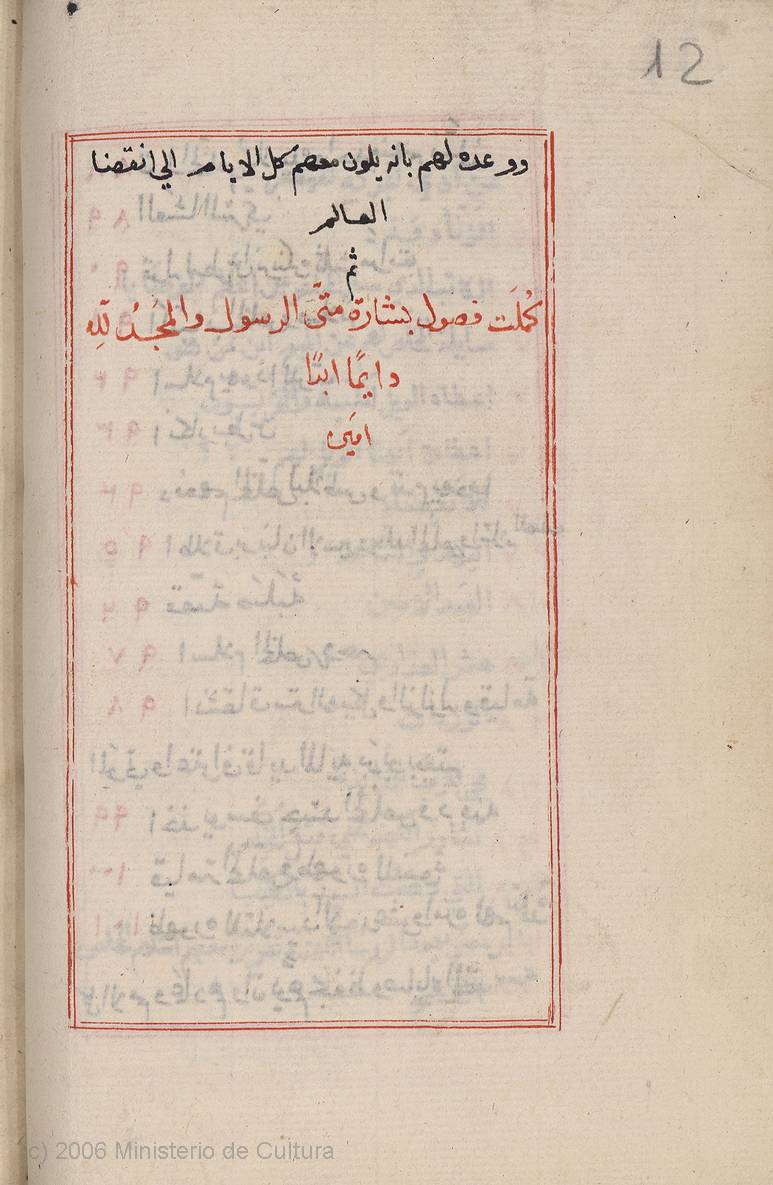 12
ووعده لهم بانه يكون معهم كل الايام الي انقضا
العالم
ثم
كمُلَت فصول بشارة متّى الرسول والمجدُ لله
دايمًا ابدًا
امين
(c) 2006 Ministerio de Cultura